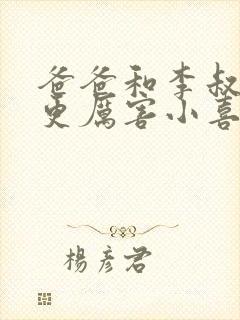 爸爸和李叔
更厲害小喜
楊彥君